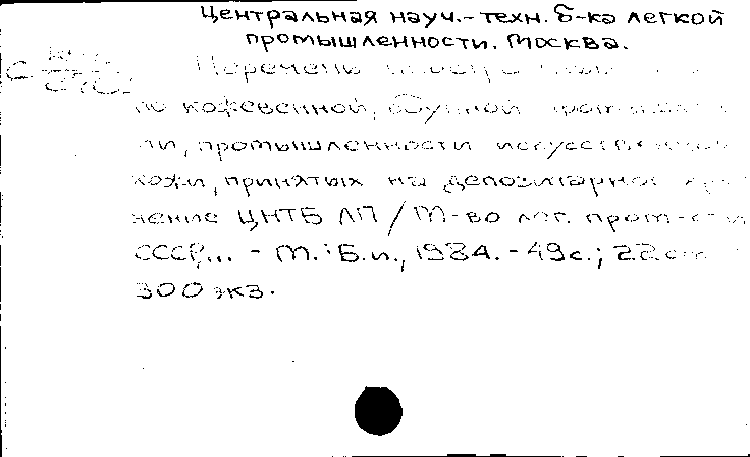 Центральная науч.-техн. б-ка легкой
промышленности. Москва.
Перечень
по кожевенной, обувной
ти, промышленности искусственной
кожи, принятых на депозитарное
нение ЦНТБ ЛП / М-во лег. пром-сти
СССР,.. - М.: Б.и., 1984. - 49с.; 22см
300 экз.